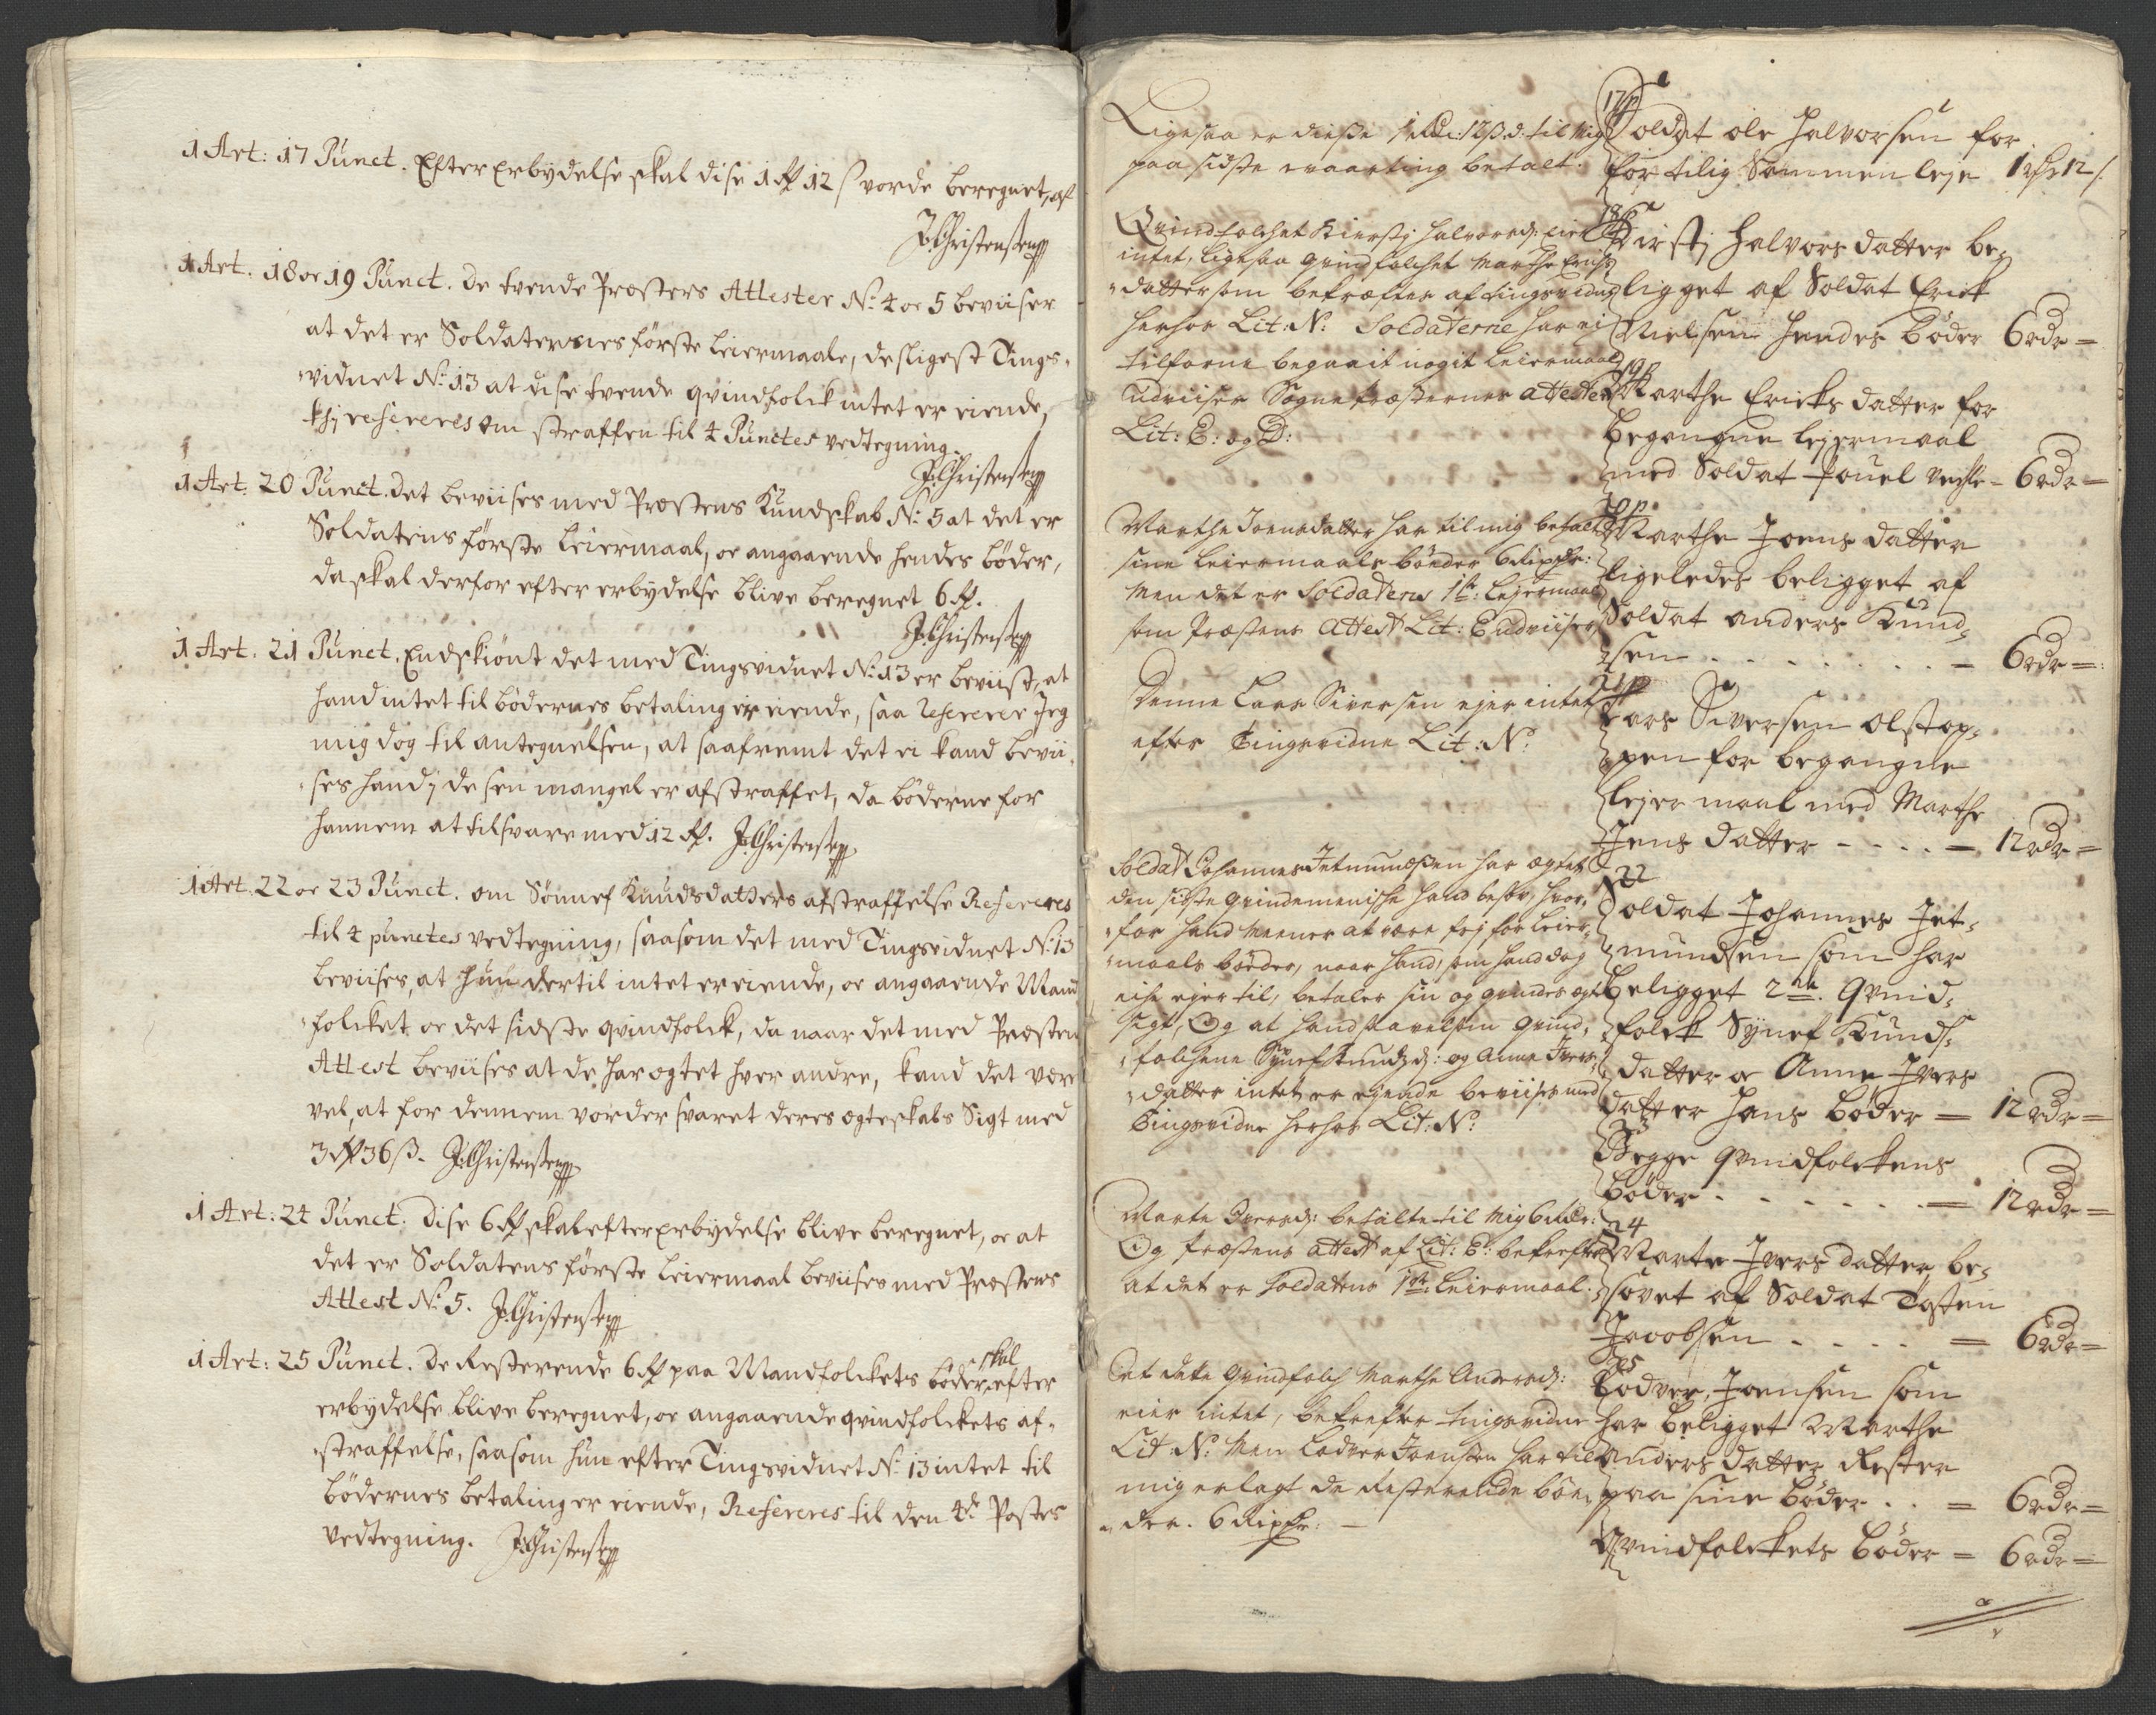 1 Art: 17 Punct. Efter Erbydelse skal dise 1 Rd 12 s vorde beregnet, af
J:Christensen
1 Art. 18 oc 19 Punct. De tvende Præsters Attester No: 4 oc 5 beviiser
at det er Soldaternes første Leiermaale, desligest Tings-
vidnet No: 13 at dise tvende qvindfolck intet er eiende,
refereres om straffen til 4 Punctes vedtegning.
J:Christensen
1 Art: 20 Punct. Det beviises med Præstens Kundskab No: 5 at det er
Soldatens første Leiermaal, oc angaaende hendes bøder,
da skal derfor efter erbydelse blive beregnet 6 Rd.
J:Christensen
1 Art. 21 Punct. Endskiønt det med Tingsvidnet No: 13 er beviist, at
hand intet til bødernes betaling er eiende, saa Refererer Jeg
mig dog til antegnelsen, at saafremt det ei kand bevii-
ses hand j de sen mangel er afstraffet, da bøderne for
hannem at tilsvare med 12 Rd. J:Christensen
1 Art. 22 oc 23 Punct. om Sønnef Knudsdatters afstraffelse Refereres
til 4 punctes vedtegning, saasom det med Tingsvidnet No: 13
beviises, at hun dertil intet er eiende, oc angaaende Mand
folcket oc det sidste qvindfolck, da naar det med Præsten
Attest beviises at de har ægtet hver andre, kand det være
vel, at for dennem vorder svaret deres ægteskabs Sigt med
3 Rd 36 ß. J:Christensen
1 Art: 24 Punct. Dise 6 Rd skal efter Erbydelse blive beregnet, oc at
det er Soldatens første Leiermaal beviises med Præstens
Attest No: 5. J:Christensen
1 Art: 25 Punct. De Resterende 6 Rd paa Mandfolckets bøder skal efter
erbydelse blive beregnet, oc angaaende qvindfolckets af-
straffelse, saasom hun efter Tingsvidnet No: 13 intet til
bødernes betaling er eiende, Refereres til den 4de Postes
vedtegning. J:Christensen
Ligesaa er disse 1 Rdr: 12 ß. d: til Mig
paa sidste waarting betalt.
Qvindfolchet Kiersti Halvorsd: eier
intet, ligesaa qvindfolchet Marthe Erichs
datter som bekræftes af tingsvidne
herhos Lit: N: Soldaterne har ei
tilforne begaait nogit Leiermaal
udviiser Sogne præsternes attester
Lit: E: og D:
Marthe Joensdatter har til mig betalt
sine Leiermaals bønder 6 Rixdr:
Men det er Soldatens 1te: Lejermaal
som Præstens Attest Lit: E udviiser
Denne Lars Siversen ejer intet
efter Tingsvidne Lit: N:
Soldat Johannes Jetmundsen har ægtet
den sidste qvindemenische hand besov, hvor-
for hand meener at være fri for Leier-
maals bøder, naar hand, som hand dog
icke ejer til, betaler sin og qvindes ægt
sigt, Og at hand saavelsom qvind-
folchene Synef Knudsd: og Anne Ivers
datter intet er eyende beviises med
Tingsvidne herhos Lit: N:
Marte Iversd: betalte til Mig 6 Rdr:
Og Præstens attest af Lit: E: bekrefter
at det er Soldatens 1te: Leiermaal.
Det dette Qvindfolch Marthe Andersd:
eier intet, bekrefter tingsvidne
Lit: N: Men Lodver Joensen har til
mig erlagt de Resterende bøn-
der. 6 Rixdr: —
17 p
Soldat ole Halvorsen for
for tilig Sammenleje 1 rdr 12 s.
18 p
Kirsti Halvors datter be-
ligget af Soldat Erick
Nielsen hendes bøder 6 rdr =
19 p
Marthe Ericks datter for
begangne lejermaal
med Soldat Pouel - 6 rdr =
20 p
Marthe Joens datter
ligeledes beligget af
Soldat anders Knud-
sen . . . . . . . — 6 rdr =
21 p
Lars Siversen olstop-
pen for begangne
lejer maal med Marthe
Jens datter - - . . — 12 rdr =
22
Soldat Johannes Jet-
mundsen som har
beligget 2de. Qvind-
folck Synef Knuds
datter oc Anne Ivers
datter hans bøder = 12 rdr =
23
Begge qvindfolckens
bøder - . . . . . . = 12 rdr =
24
Marte Ivers datter be-
sovet af Soldat Tosten
Jacobsen . . . . . = 6 rdr =
25
Lodver Joensen som
har beligget Marthe
Anders datter Rester
paa sine bøder . . = 6 rdr =
Qvindfolckets bøder = 6 rdr =